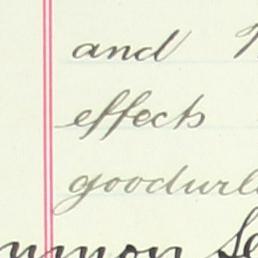 and
effects
goodwill
mmon Se